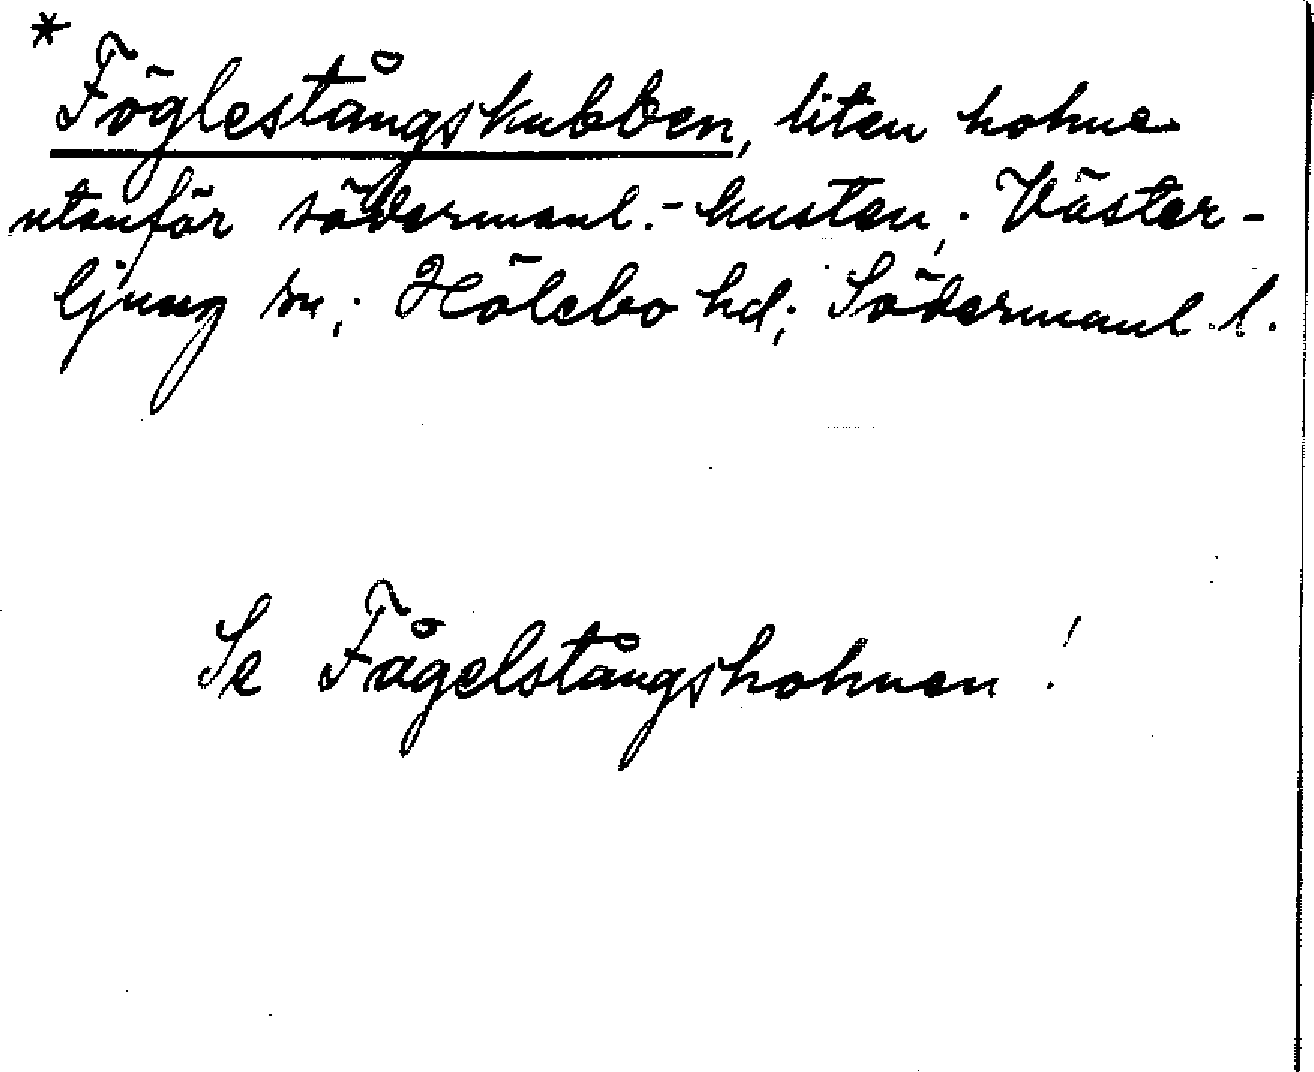 * Föglestångskubben, liten holme
utanför södermanl.-kusten; Väster-
ljung sn; Hölebo hd; Södermanl. l.
Se Fågelstångsholmen!